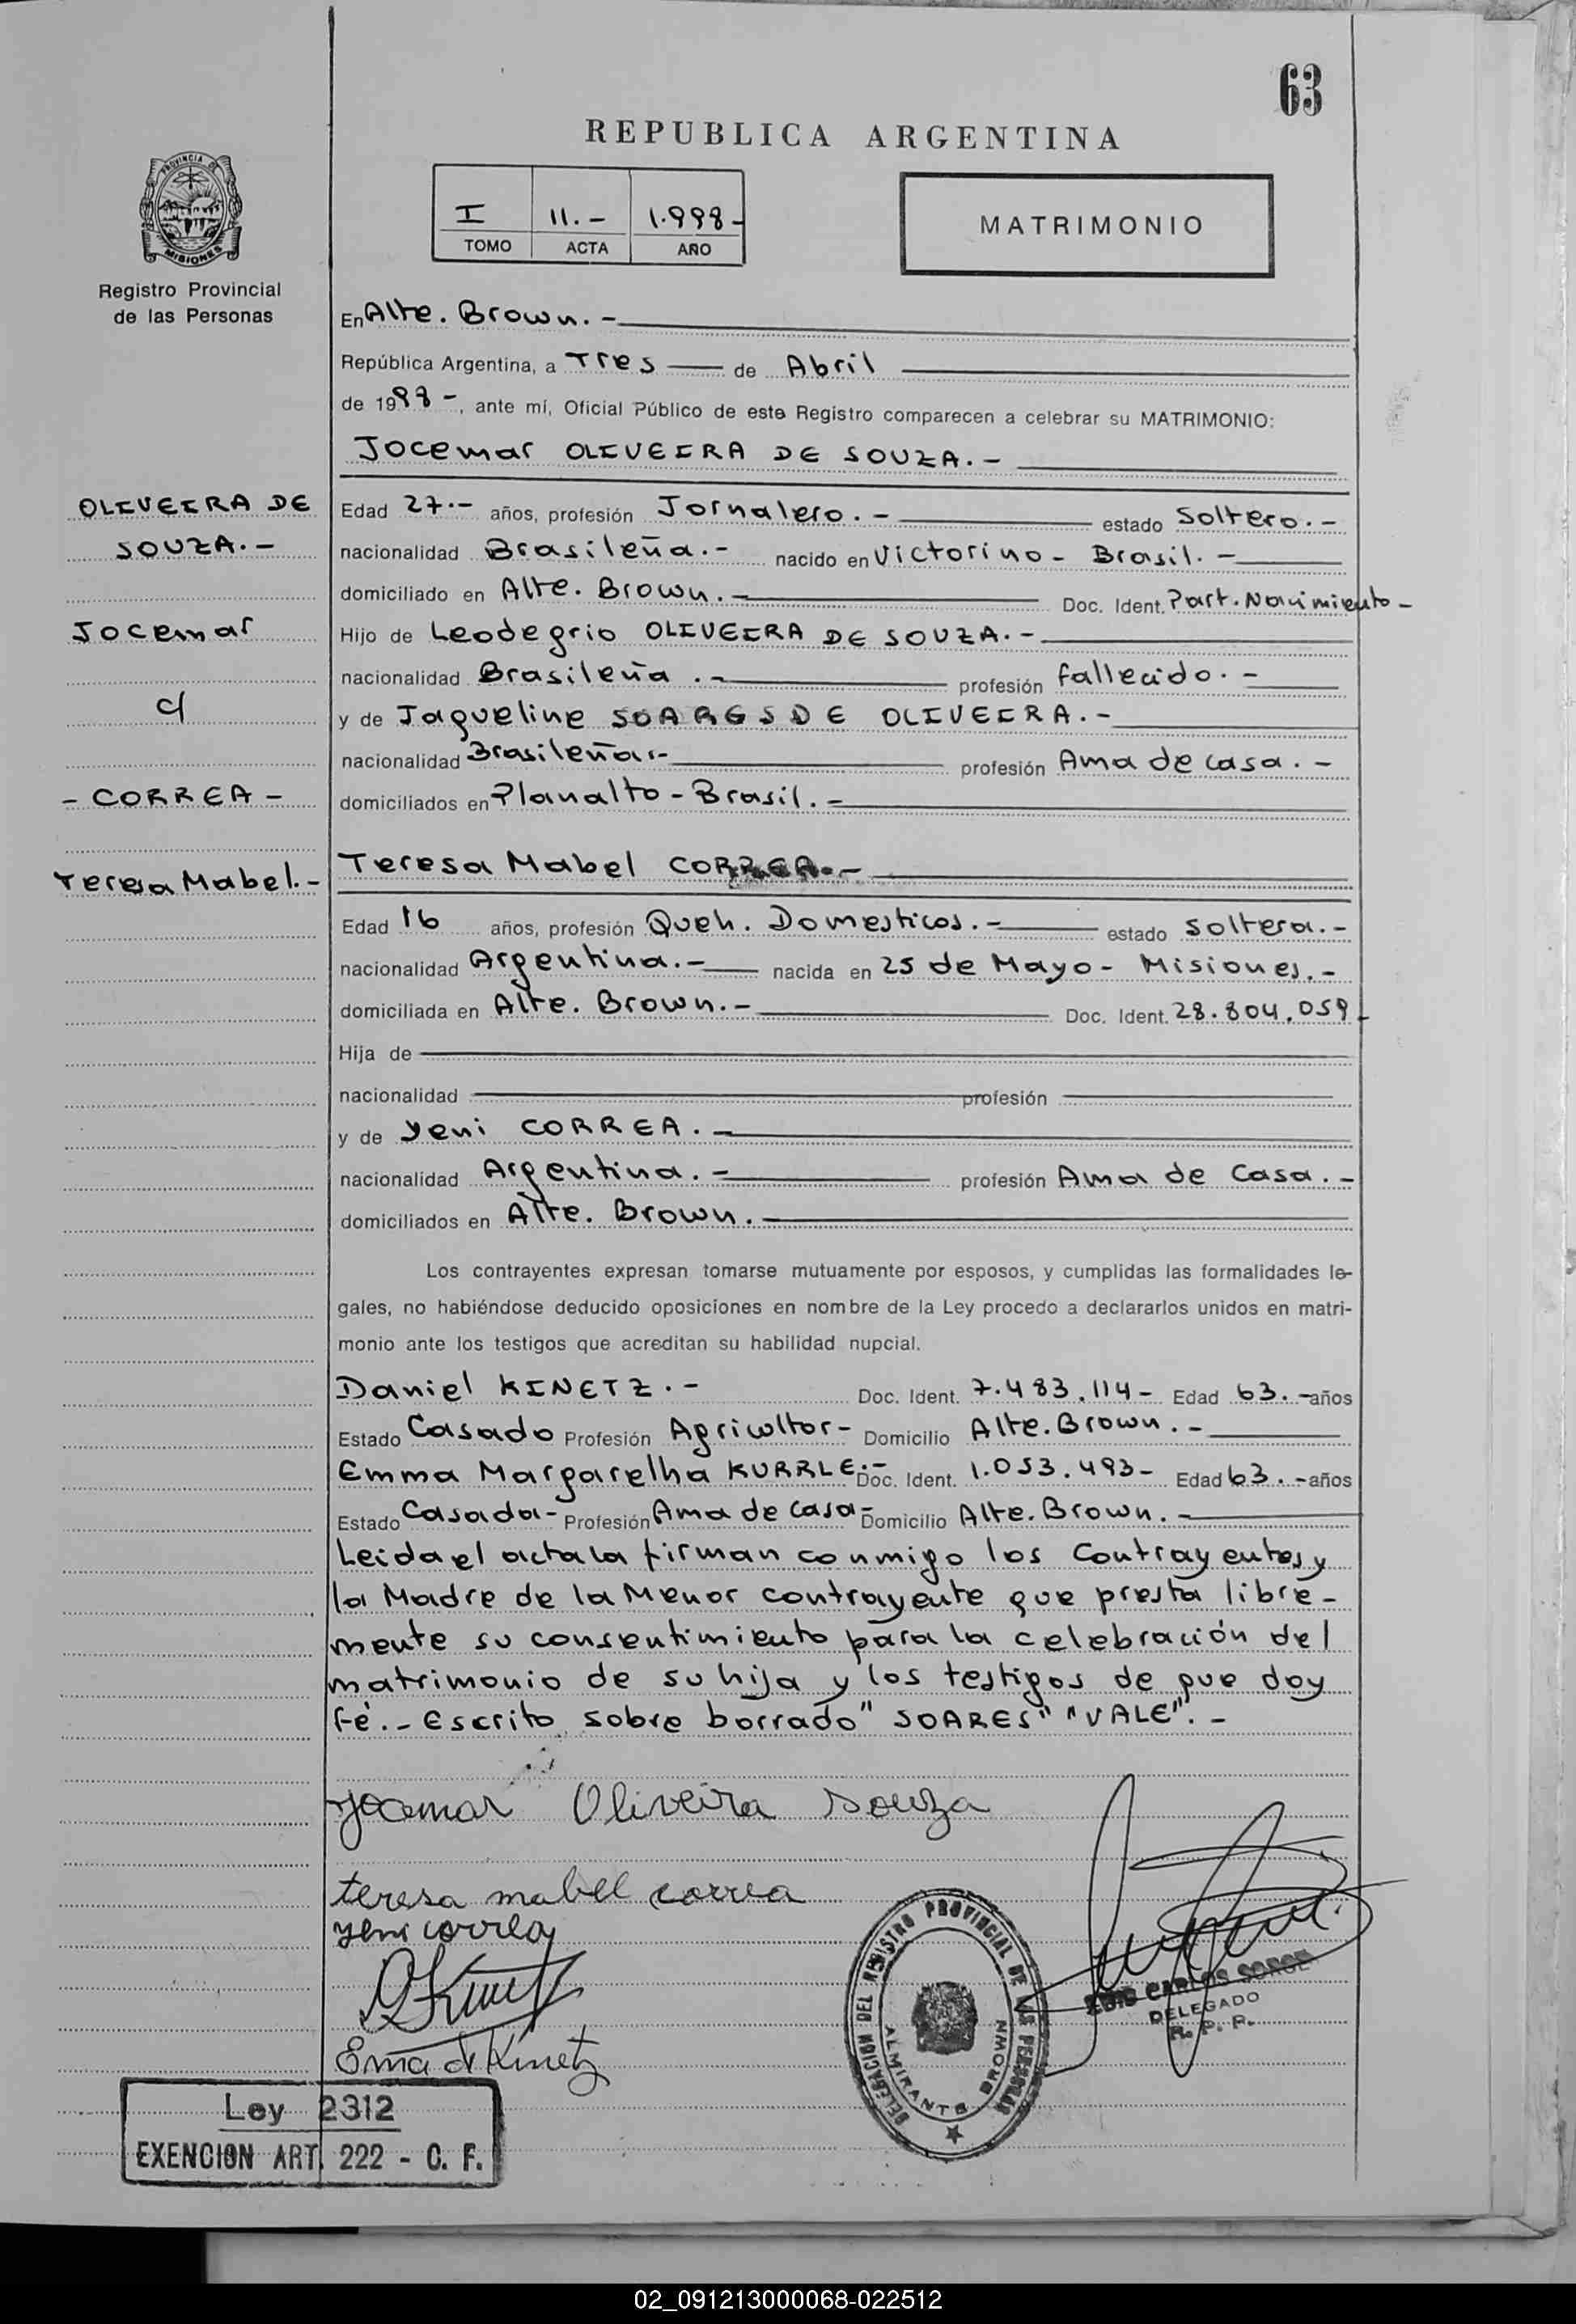 63
REPUBLICA ARGENTINA
PROVINCIA DE
MISIONES
Registro Provincial
de las Personas
I 11.- 1.998-
TOMO ACTA AÑO
MATRIMONIO
En Alte. Brown.-
República Argentina, a Tres de Abril
de 1998-, ante mí, Oficial Público de este Registro comparecen a celebrar su MATRIMONIO:
Jocemar OLIVEIRA DE SOUZA.-
OLIVEIRA DE
SOUZA.-
Jocemar
c/
- CORREA -
Teresa Mabel.-
Edad 27.- años, profesión Jornalero.- estado Soltero.-
nacionalidad Brasileña.- nacido en Victorino - Brasil.-
domiciliado en Alte. Brown.- Doc. Ident. Part. Nacimiento-
Hijo de Leodegrio OLIVEIRA DE SOUZA.-
nacionalidad Brasileña.- profesión fallecido.-
y de Jaqueline SOARES DE OLIVEIRA.-
nacionalidad Brasileña.- profesión Ama de casa.-
domiciliados en Planalto - Brasil.-
Teresa Mabel CORREA.-
Edad 16 años, profesión Queh. Domesticos.- estado Soltera.-
nacionalidad Argentina.- nacida en 25 de Mayo - Misiones.-
domiciliada en Alte. Brown.- Doc. Ident. 28.804.059-
Hija de
nacionalidad profesión
y de Yeni CORREA.-
nacionalidad Argentina.- profesión Ama de Casa.-
domiciliados en Alte. Brown.
Los contrayentes expresan tomarse mutuamente por esposos, y cumplidas las formalidades le-
gales, no habiéndose deducido oposiciones en nombre de la Ley procedo a declararlos unidos en matri-
monio ante los testigos que acreditan su habilidad nupcial.
Daniel KINETZ.- Doc. Ident. 7.483.114- Edad 63.- años
Estado Casado Profesión Agricultor- Domicilio Alte. Brown.-
Emma Margarelha KURRLE.- Doc. Ident. 1.053.493- Edad 63.- años
Estado Casada- Profesión Ama de casa- Domicilio Alte. Brown.-
Leida el acta la firman conmigo los contrayentes y
la Madre de la Menor contrayente que presta libre-
mente su consentimiento para la celebración del
matrimonio de su hija y los testigos de que doy
fé.- Escrito sobre borrado "SOARES" "VALE".-
Jocemar Oliveira Souza
teresa mabel correa
yeni correa
D Kinetz
Ema d Kinetz
DELEGACION DEL REGISTRO PROVINCIAL DE LAS PERSONAS
ALMIRANTE BROWN
CARLOS
DELEGADO
R. P. P.
Ley 2312
EXENCION ART. 222 - C. F.
02_091213000068-022512